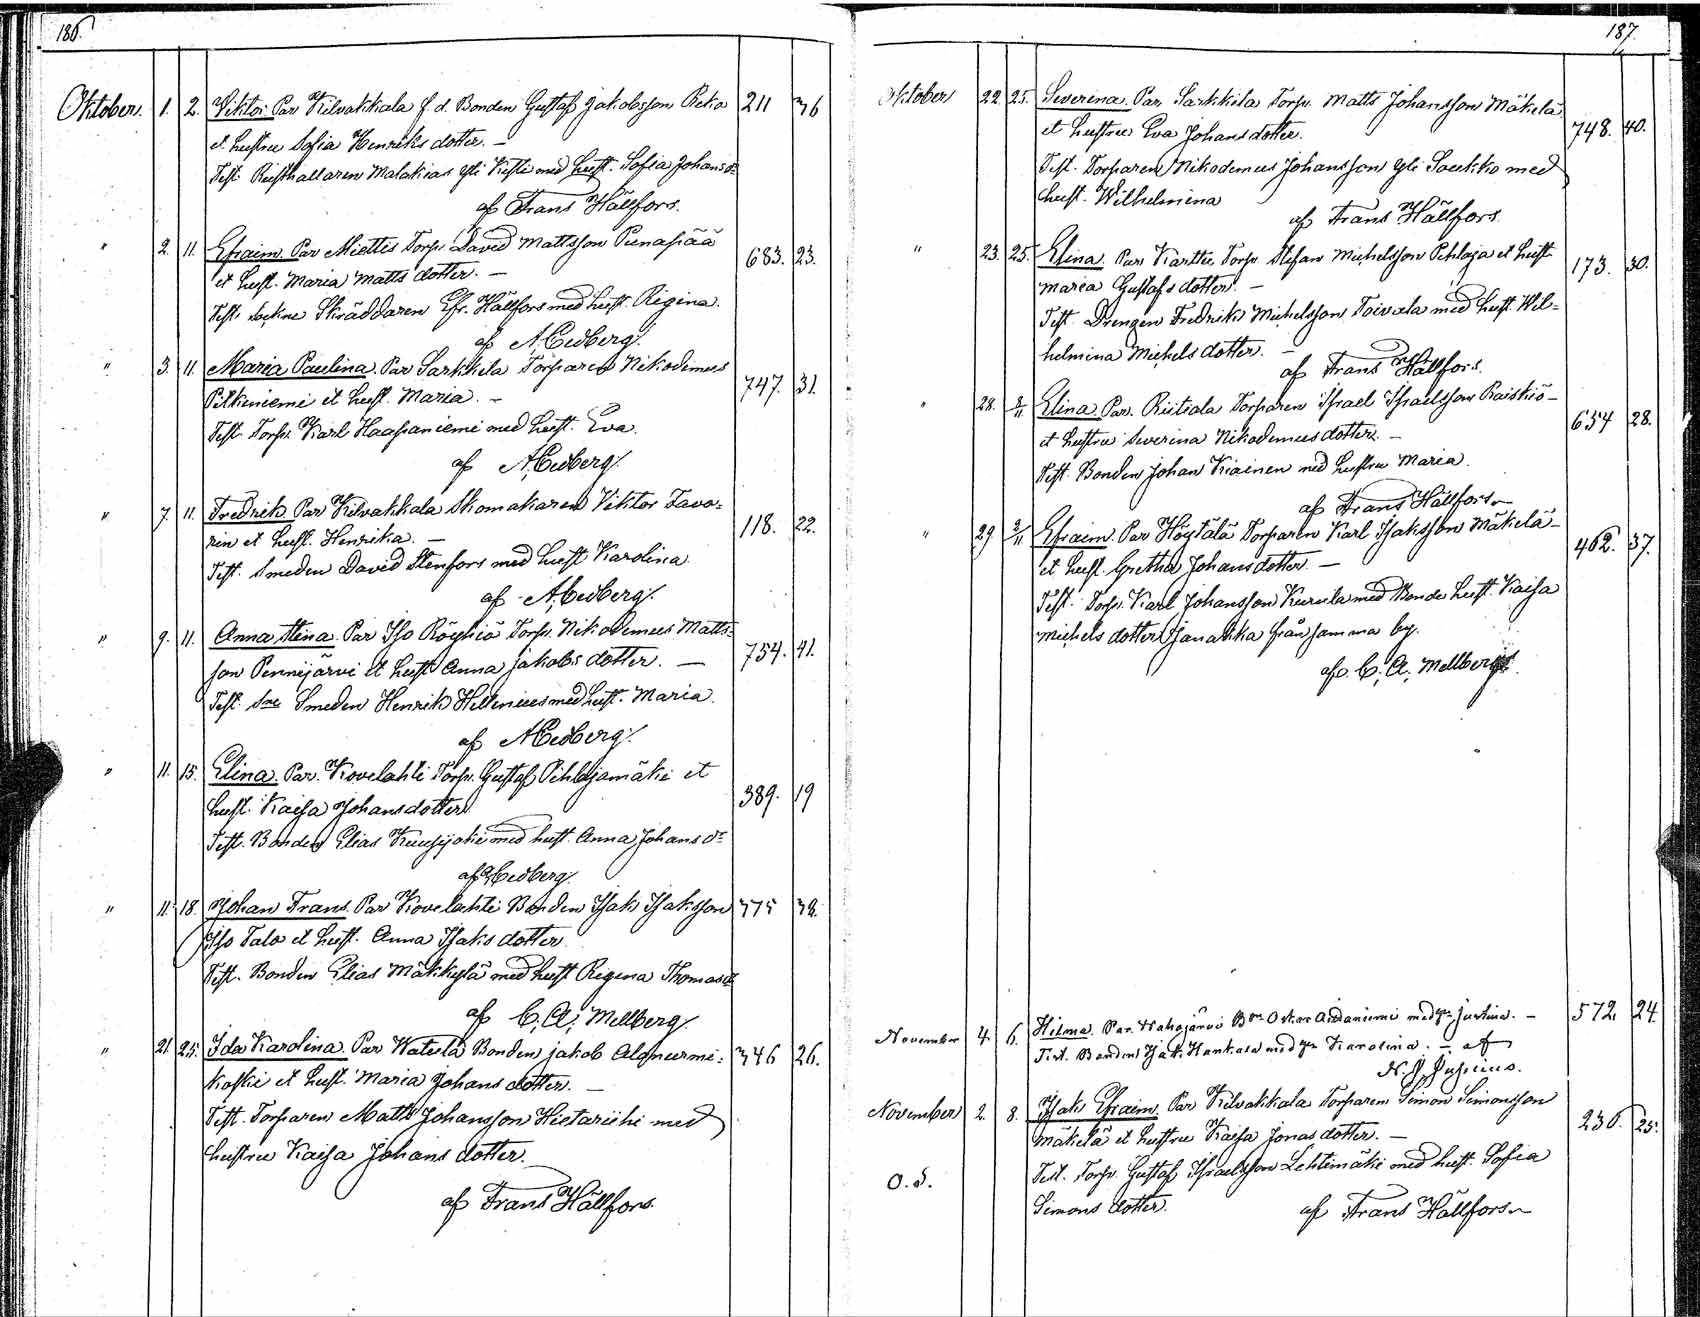 186.
Oktober. 1. 2. Viktor. Par Kilvakkala f. d. Bonden Gustaf Jakobsson Reko 211 36
et hustru Sofia Henriks dotter. —
Test. Rusthållaren Malakias Yli Kesti med hust. Sofia Johans dr
af Frans Hällfors.
" 2. 11. Efraim. Par Miettis Torp. David Mattsson Punapää 683. 23.
et hust. Maria Matts dotter. —
Test. Sockne Skräddaren Efr. Hällfors med hust. Regina.
af A. Cedberg.
" 3 11. Maria Paulina. Par Sarkkila Torparen Nikodemus 747. 31.
Pitkiniemi et hust. Maria. —
Test. Torp. Karl Haapaniemi med hust. Eva.
af A. Cedberg.
" 7. 11. Fredrik. Par Kilvakkala Skomakaren Viktor Tavo= 118. 22.
rin et hust. Henrika. —
Test. Smeden David Stenfors med hust Karolina
af A. Cedberg.
" 9. 11. Anna Stina. Par Iso Röyhiö Torp. Nikodemus Matts= 754. 41.
son Pennijärvi et hust Anna Jakobs dotter. —
Test. Smeden Henrik Hellenius med hust. Maria.
af A. Cedberg.
" 11. 15. Elina. Par. Kovelahti Torp. Gustaf Pihlajamäki et 389. 19
hust. Kaisa Johans dotter
Test. Bonden Elias Kuusijoki med hust. Anna Johans dr
af A. Cedberg.
" 11. 18. Johan Frans. Par Kovelahti Bonden Isak Isaksson 375 32.
Iso Talo et hust. Anna Isaks dotter
Test. Bonden Elias Mäkkylä med hust Regina Thomas dr
af C. A. Mellberg.
" 21. 25. Ida Karolina. Par Vatula Bonden Jakob Alanurmi= 346 26.
koski et hust. Maria Johans dotter. —
Test. Torparen Matts Johansson Hietariihi med
hustru Kaisa Johans dotter.
af Frans Hällfors.
187.
Oktober 22. 25. Severina. Par. Sarkkila Torp. Matts Johansson Mäkelä 748. 40.
et hustru Eva Johans dotter.
Test. Torparen Nikodemus Johansson Yli Soukko med
hust. Wilhelmina
af Frans Hällfors.
" 23. 25. Elina. Par. Karttu Torp. Stefan Michelsson Pihlaja et hust 173. 30.
Maria Gustafs dotter. —
Test. Drengen Fredrik Michelsson Toivola med hust. Wil=
helmina Michels dotter. —
af Frans Hällfors.
" 28. 2/11 Elina. Par. Riitiala Torparen Israel Israelsson Raiskiö 654 28.
et hustru Severina Nikodemus dotter. —
Test. Bonden Johan Kiainen med hustru Maria.
af Frans Hällfors
" 29 2/11 Efraim. Par Höytälä Torparen Karl Isaksson Mäkelä 462. 37.
et hust. Gretha Johans dotter. —
Test. Torp. Karl Johansson Kurula med Bonde hust. Kaisa
Michels dotter Janakka från samma by.
af C. A. Mellberg.
November 4. 6. Hilma. Par. Vahojärvi Bon Oskar Aidaniemi med Justina. — 572. 24.
Test. Bonden Isak Hankala med Karolina. — af
November 2. 8. Isak Efraim. Par Kilvakkala Torparen Simon Simonsson 236. 25.
Mäkelä et hustru Kaisa Jonas dotter. —
O. S. Test. Torp. Gustaf Israelsson Lehtimäki med hust. Sofia
Simons dotter. af Frans Hällfors